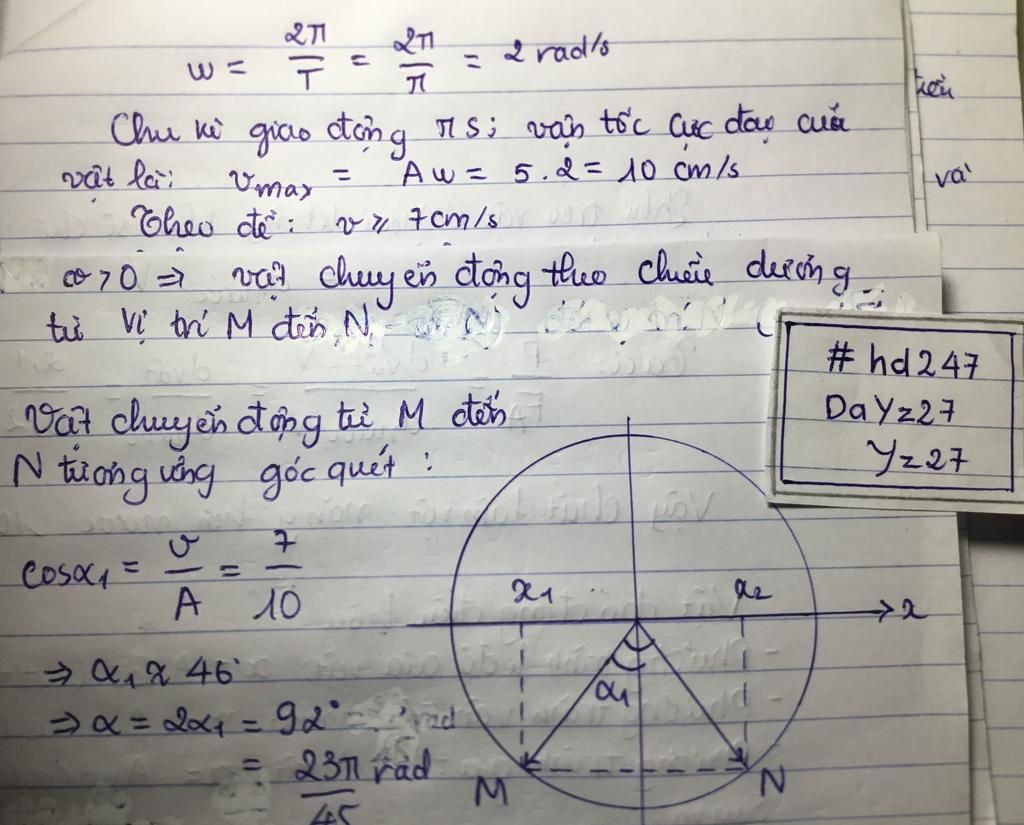 w = 2π/T = 2π/π = 2 rad/s
Chu kì giao động π s; vận tốc cực đại của
vật là: vmax = Aw = 5.2 = 10 cm/s
Theo đề: v ⩾ 7cm/s
v > 0 ⇒ vật chuyển động theo chiều dương
từ vị trí M đến N
Vật chuyển động từ M đến
N tương ứng góc quét:
cosα1 = v/A = 7/10
⇒ α1 ≈ 46°
⇒ α = 2α1 = 92°
= 23π/45 rad
x1
x2
x
α1
M
N
#hd247
DaYz27
Yz27
và